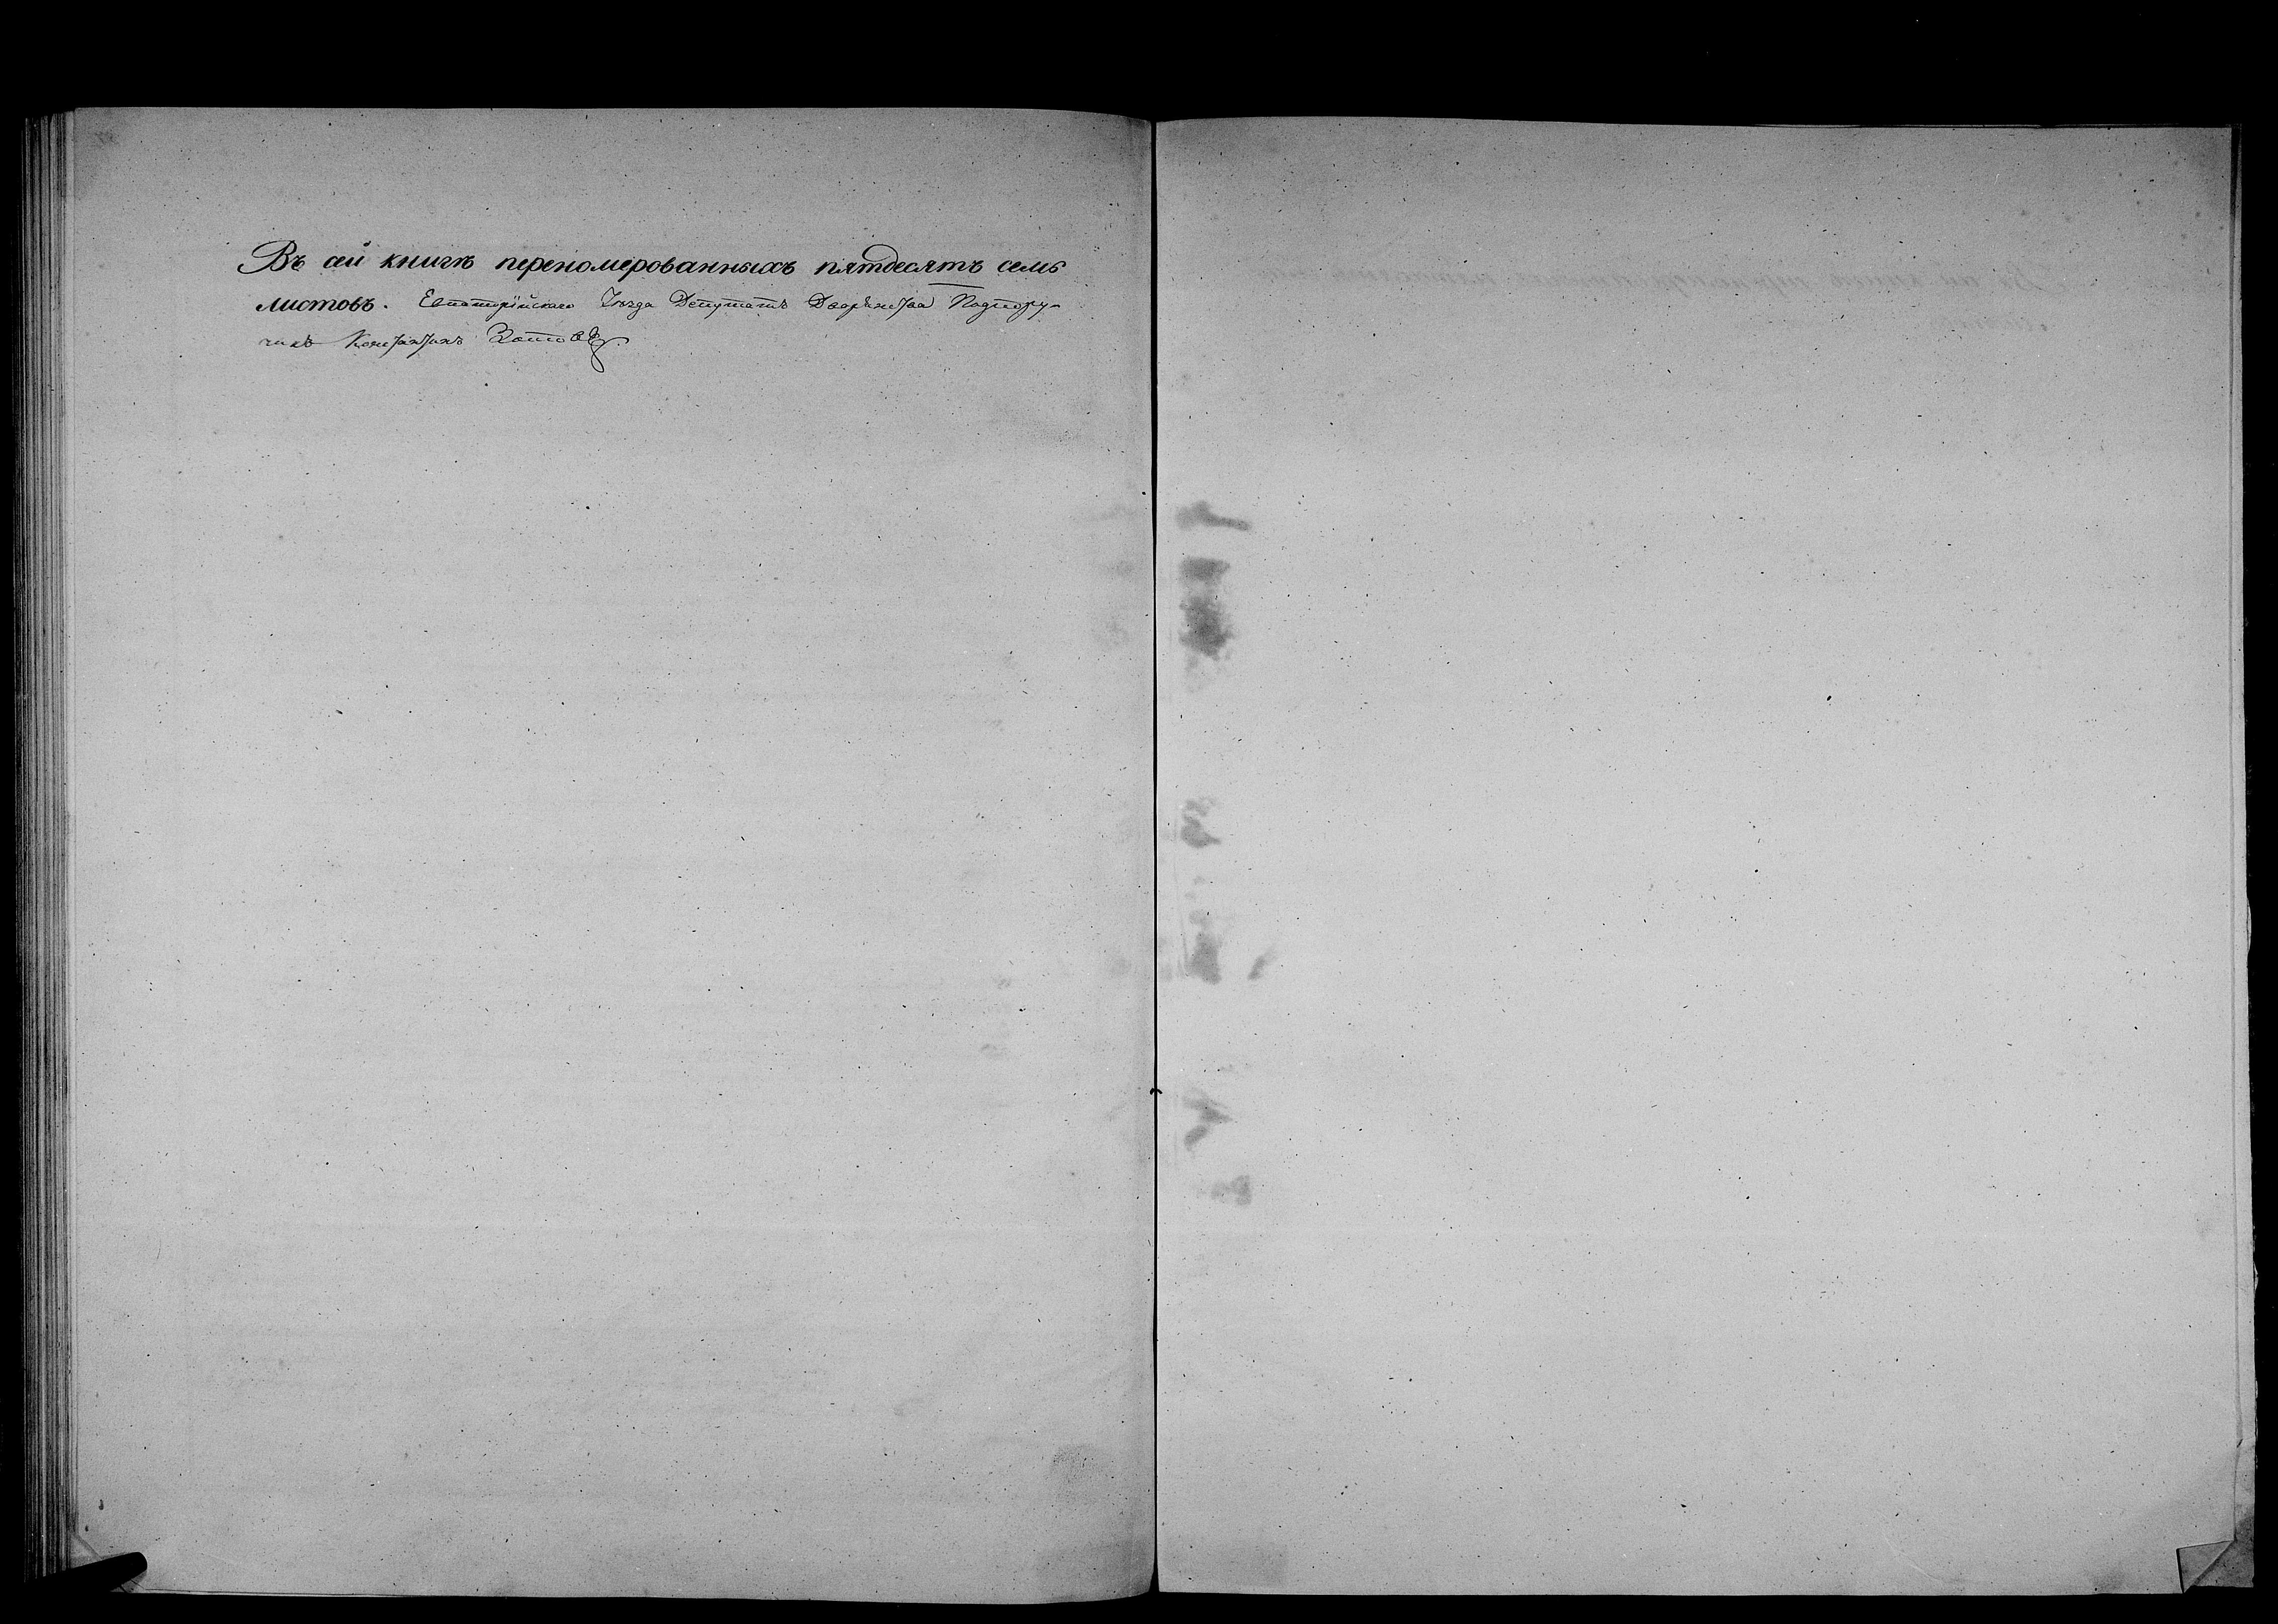 Въ сей книгѣ перепомерованныхъ пятдесятъ семь
листовъ. Евпаторійскаго Уѣзда Депутатъ Дворянства Подпору-
чикъ Константинъ Зотовъ.